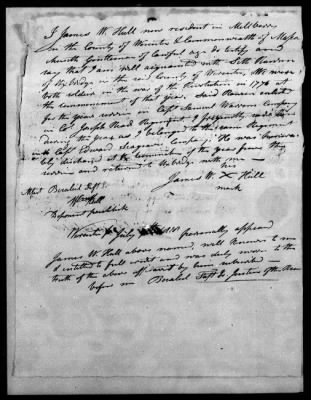 I James W. Hall now resident in Millbury
in the County of Worcester & Commonwealth of Massa
chusetts Gentleman of lawful age do testify and
say that I am well acquainted with Seth
of Uxbridge in the said County of Worcester, We were
both soldiers in the war of the Revolution in 1776 at
the commencement of that year, said enlisted
for one year in Capt Samuel Warren Company
in Col Joseph Read Regiment I frequently saw him
during the year as I belonged to the same Regiment
in Capt Edward Seagrave Company. He was honora
bly discharged at the termination of the year from the
service and returned to Uxbridge with me
his
James W. X Hall
mark
Attest Bezaleel Taft
Hall
Worcester July 1818 personally appeared
James W. Hall above named, well known to me
& intitled to full credit and was duly sworn to the
truth of the above affidavit by him subscribed
before me Bezaleel Taft Jr Justice of the Peace